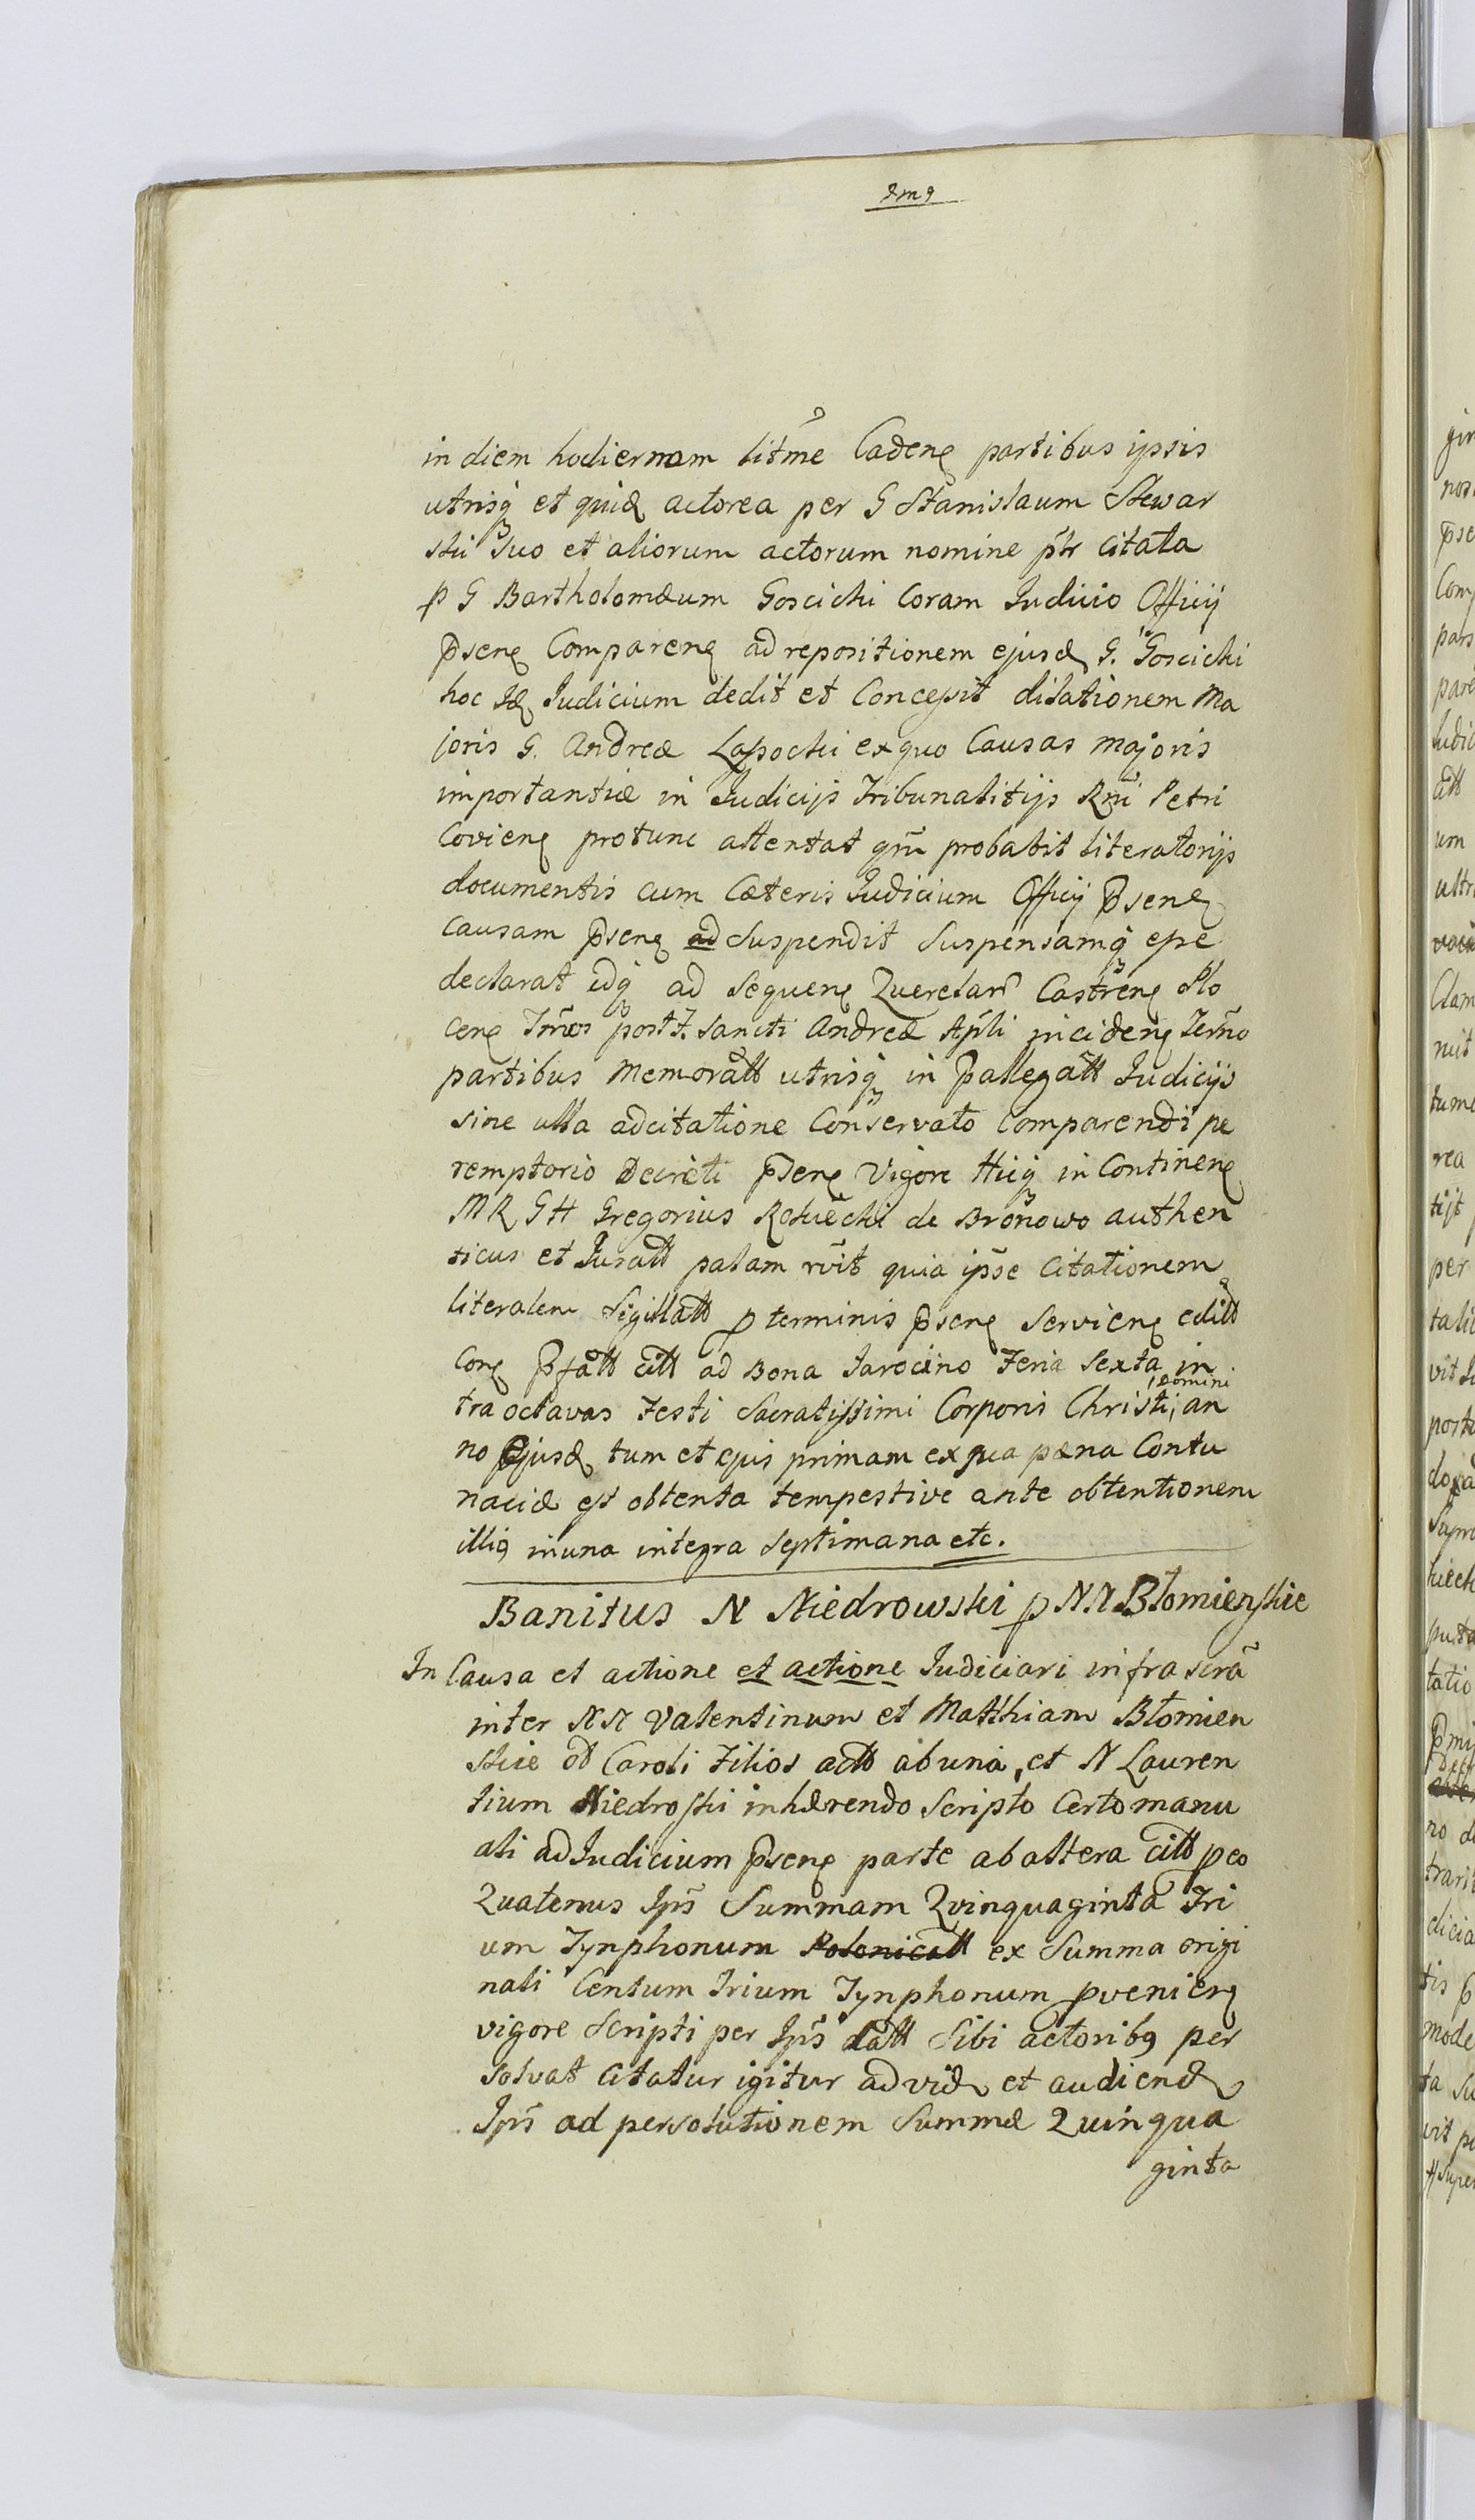 in diem hodiernam litme Cadenę partibus ipsis
utrisq et quid actorea per G Stanislaum Skwar
ski suo et aliorum actorum nomine ptr Citata
p G Bartholomæum Goscicki Coram Iudicio Officij
pseng Compareng ad repositionem ejusd G. Goscicki
hoc Id Iudicium dedit et Concessit dilationem Ma
joris G. Andreæ Lassocki ex quo Causas majoris
importantiæ in Iudicijs Tribunalitijs Rni Petri
Covieng protunc attentat qm probabit literatorijs
documentis cum Cæteris Iudicium Officij pseng
Causam pseng ad Suspendit Suspensamq esse
declarat idq ad Sequeng Querelar Castreng Plo
Ceng Tmos post F. Sancti Andreæ Apli incideng Termo
partibus Memoratt utrisq in pallegatt Iudicijs
sine ulla adcitatione Conservato Comparendi pe
remptorio Decreti pseng Vigore Hicq in Contineng
MR GH Gregorius Roduecki de Bronowo authen
ticus et Juratt palam rvit quia ipse Citationem
literalem Sigillatt p terminis pseng Servieng editt
Corg pfatt citt ad Bona Jarocino Feria Sexta in
tra octavas Festi Sacratissimi Corporis Christi, Domini an
no Ejusd tum et ejus primam ex qua pæna Contu
naciæ est obtenta tempestive ante obtentionem
illig in una integra Septimana etc.
Banitus N Niedrowski p NN Błomienskie
In Causa et actione et actione Iudiciari infra scra
inter NN Valentinum et Matthiam Błomien
skie od Caroli Filios actt ab una, et N Lauren
tium Niedroski inhærendo Scripto Certo manu
ali ad Iudicium pseng parte ab altera citt peo
Quatenus Ips Summam Qvinquaginta Tri
um Tynphonum Polonicatt ex Summa origi
nali Centum Trium Tynphonum pvenieng
vigore Scripti per Ips datt Sibi actorib9 per
solvat Citatur igitur ad vid et audiend
Ips ad persolutionem Summæ Quinqua
ginta